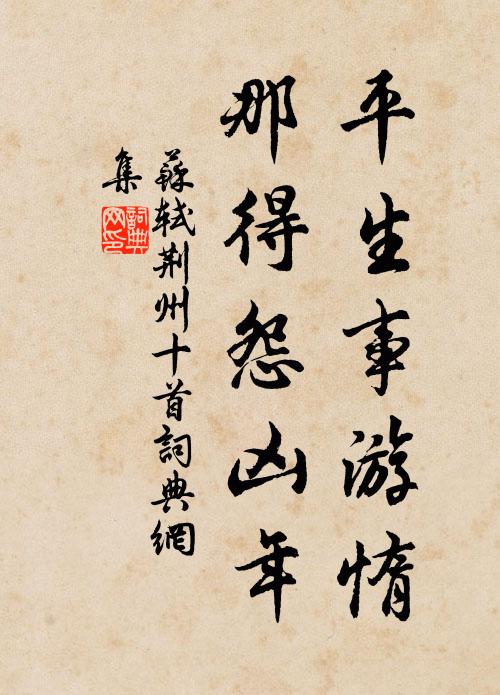 平生事游惰
那得怨凶年
蘇軾荆州十首詞典網
集
詞典
网印